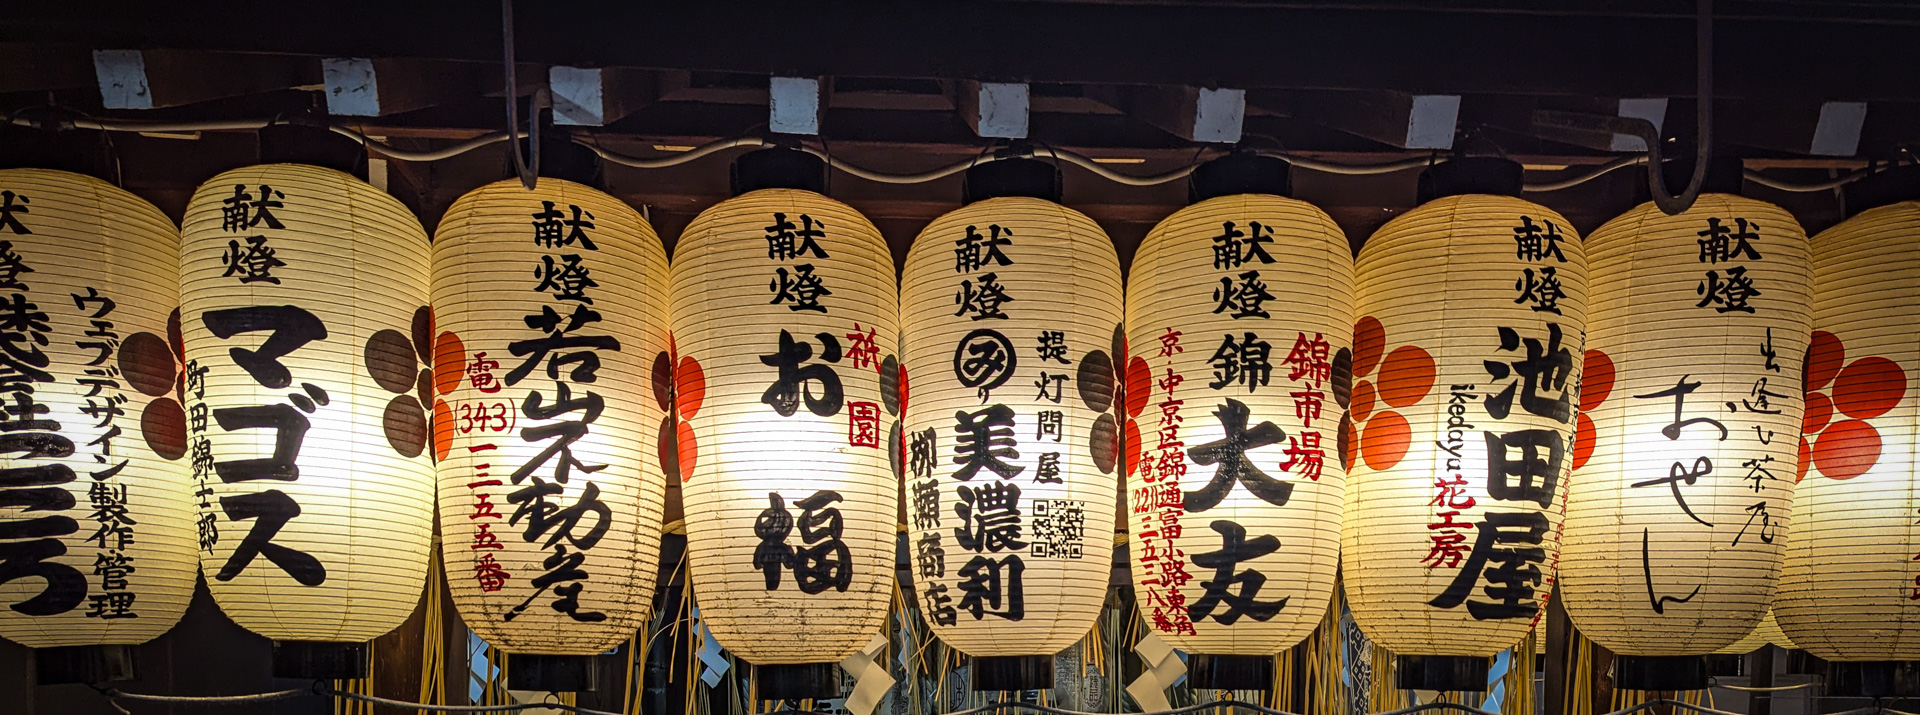 献燈
株式会社ニニろ
ウェブデザイン製作管理
献燈
マゴス
町田錦士郎
献燈
若山不動産
電(343)一三五五番
献燈
祇園
お福
献燈
提灯問屋
み
美濃利
柳瀬商店
献燈
錦市場
錦大友
京・中京区錦通富小路東角
電(221)三五三八番
献燈
池田屋
ikedaya
花工房
献燈
出逢ひ茶屋
おせん